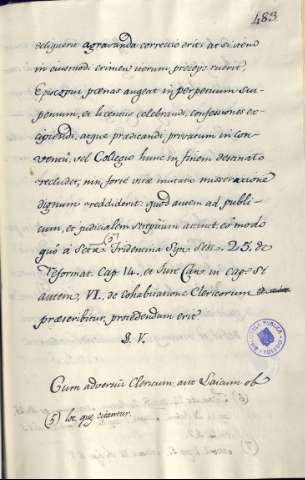 483.
reliquerit agravanda correctio erit: at si vero
in eiusmodi crimen iterum, preceps ruerit,
Episcopus pœnas augeat in perpetuum sus-
pensum, et licentiis celebrandi, confessiones ex-
cipiendi, atque prædicandi, privatum in con-
ventu, vel Colegio hunc in finem destinato
recludet, nisi forte vitæ mutatio miseratione
dignum reddiderit: quod autem ad publi-
cum, et judicialem strepitum attinet, eo modo
quo à Sctâ Tridentina Syn. Ses. 25. de
Reformat. Cap. 14. et Jure Can. in Cap. Si
autem, VI. de Cohabitatione Clericorum
præscribitur, procedendum erit
§. V.
Cum adversus Clericum, aut Laicum ob
(5) loc. que citantur.